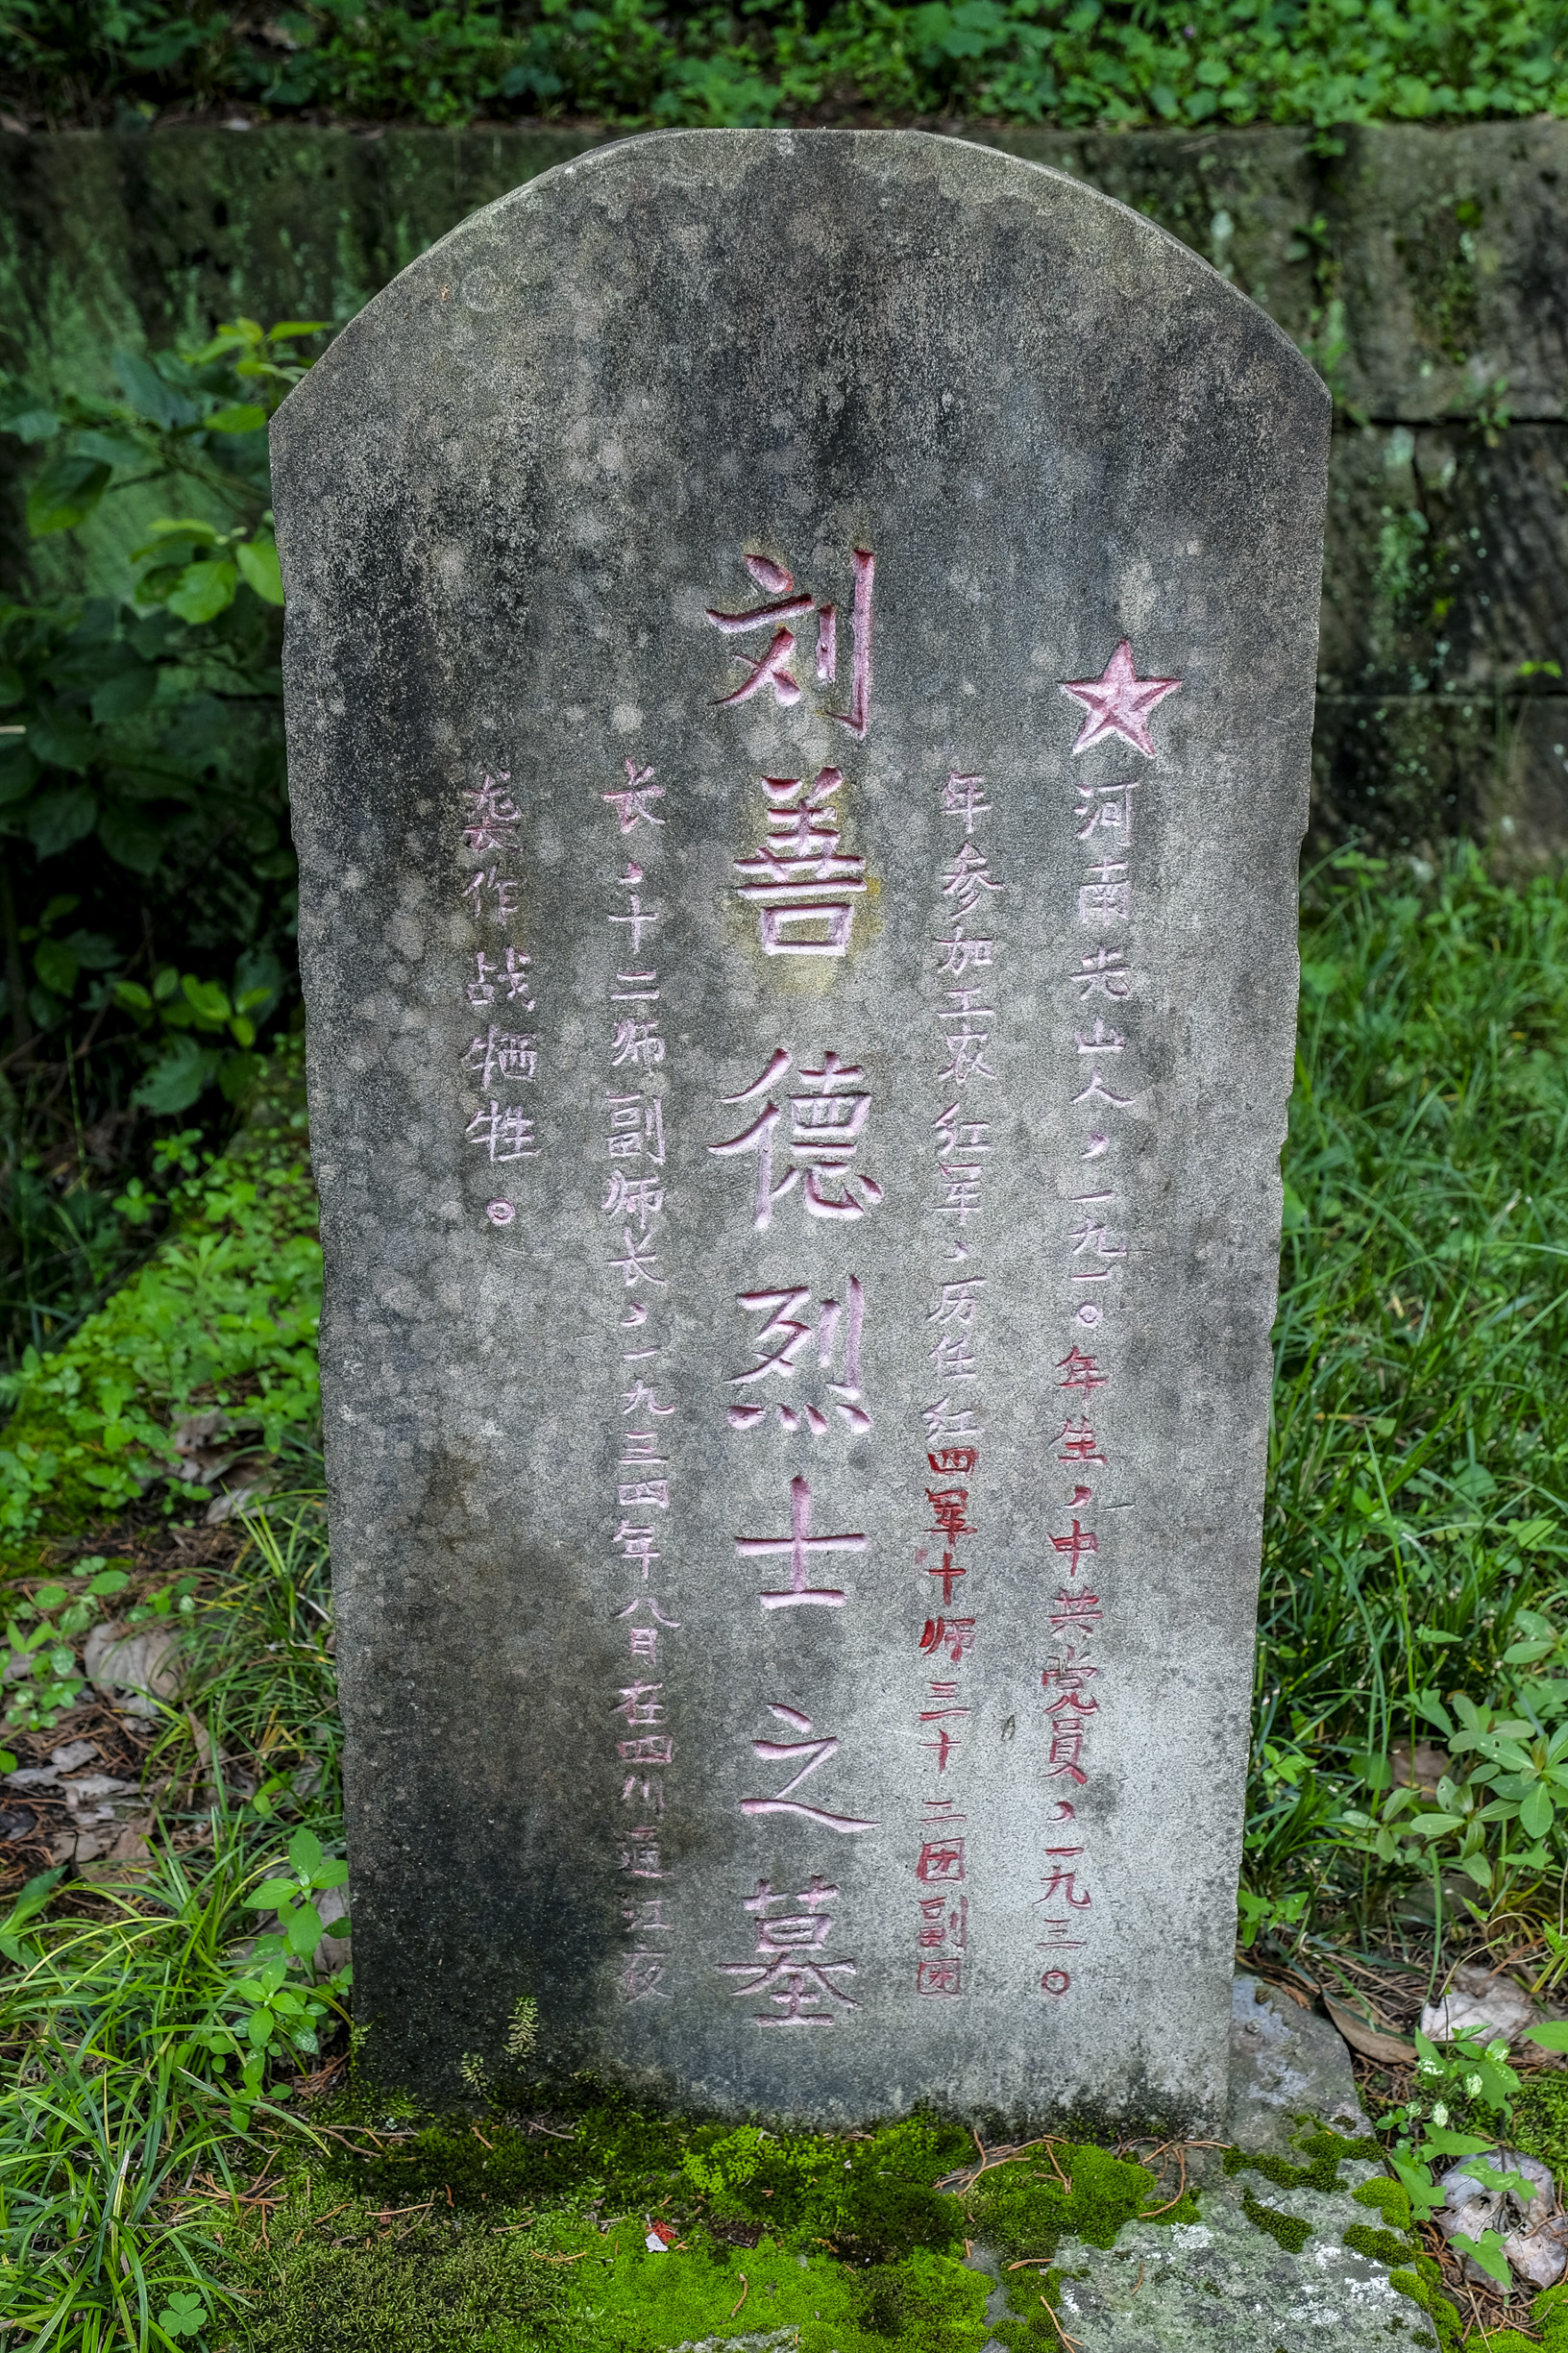 河南光山人，一九一〇年生，中共党员，一九三〇
年参加工农红军，历任红四军十师三十二团副团
刘善德烈士之墓
长，十二师副师长，一九三四年八月在四川通江夜
袭作战牺牲。